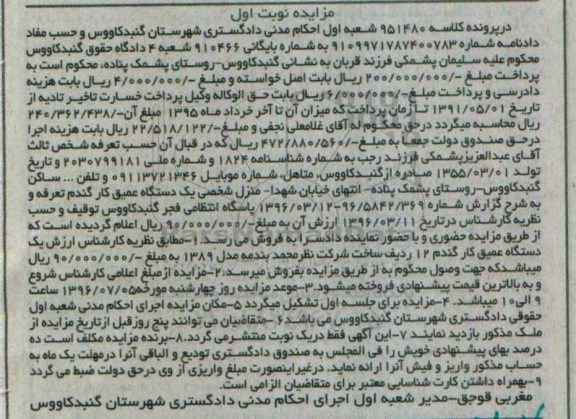 مزایده نوبت اول
درپرونده کلاسه ۹۵۱۴۸۰ شعبه اول احکام مدنی دادگستری شهرستان گنبدکاووس و حسب مفاد
دادنامه شماره ۹۱۰۹۹۷۱۷۸۷۴۰۰۷۸۳ به شماره بایگانی ۹۱۰۴۶۶ شعبه ۴ دادگاه حقوق گنبدکاووس
محکوم علیه سلیمان پشمکی فرزند قربان به نشانی گنبدکاووس-روستای پشمک پناده، محکوم است به
پرداخت مبلغ -/۲۰۰/۰۰۰/۰۰۰ ریال بابت اصل خواسته و مبلغ -/۴/۰۰۰/۰۰۰ ریال بابت هزینه
دادرسی و پرداخت مبلغ-/۶/۰۰۰/۰۰۰ ریال بابت حق الوکاله وکیل پرداخت خسارت تاخیر تادیه از
تاریخ ۱۳۹۱/۰۵/۰۱ تا زمان پرداخت که میزان آن تا آخر خرداد ماه ۱۳۹۵ مبلغ آن-/۲۴۰/۳۶۲/۴۳۸
ریال محاسبه میگردد درحق محکوم له آقای غلامعلی نجفی و مبلغ-/۲۲/۵۱۸/۱۲۲ ریال بابت هزینه اجرا
درحق صندوق دولت جمعا به مبلغ-/۴۷۲/۸۸۰/۵۶۰ ریال که در قبال آن حسب تعرفه شخص ثالث
آقای عبدالعزیز پشمکی فرزند رجب به شماره شناسنامه ۱۸۲۴ و شماره ملی ۲۰۳۰۷۹۹۱۸۱ و تاریخ
تولد ۱۳۵۵/۰۳/۰۱ صادره ازگنبدکاووس، متاهل، شماره موبایل ۰۹۱۱۳۷۲۱۳۴۶ و تلفن ... ساکن
گنبدکاووس-روستای پشمک پناده- انتهای خیابان شهدا- منزل شخصی یک دستگاه عمیق کار گندم تعرفه و
به شرح گزارش شماره ۹۶/۵۸۴۲/۳۶۹-۱۳۹۶/۰۳/۱۲ پاسگاه انتظامی فجر گنبدکاووس توقیف و حسب
نظریه کارشناس درتاریخ ۱۳۹۶/۰۳/۱۱ ارزش آن به مبلغ-/۹۰/۰۰۰/۰۰۰ ریال اعلام گردیده است که
از طریق مزایده حضوری و با حضور نماینده دادسرا به فروش می رسد.۱-مطابق نظریه کارشناس ارزش یک
دستگاه عمیق کار گندم ۱۲ ردیف ساخت شرکت نظرمحمد بندمه مدل ۱۳۸۹ به مبلغ -/۹۰/۰۰۰/۰۰۰ ریال
میباشدکه جهت وصول محکوم به از طریق مزایده بفروش میرسد.۲-مزایده ازمبلغ اعلامی کارشناس شروع
و به بالاترین قیمت پیشنهادی فروخته میشود.۳-موعد مزایده روز چهارشنبه مورخه۱۳۹۶/۰۷/۰۵ ساعت
۹ الی۱۰ میباشد. ۴-مزایده برای جلسه اول تشکیل میگردد ۵-مکان مزایده اجرای احکام مدنی شعبه اول
حقوقی دادگستری شهرستان گنبدکاووس می باشد ۶-متقاضیان می توانند پنج روزقبل ازتاریخ مزایده از
ملک مذکور بازدید نمایند ۷-این آگهی فقط دریک نوبت منتشرمی گردد.۸-برنده مزایده مکلف است ده
درصد بهای پیشنهادی خویش را فی المجلس به صندوق دادگستری تودیع و الباقی آنرا درمهلت یک ماه به
حساب مذکور واریز و فیش آنرا ارائه نماید. درغیراینصورت مبلغ واریزی از وی درحق دولت ضبط می گردد
۹-بهمراه داشتن کارت شناسایی معتبر برای متقاضیان الزامی است.
مغربی قوجق-مدیر شعبه اول اجرای احکام مدنی دادگستری شهرستان گنبدکاووس